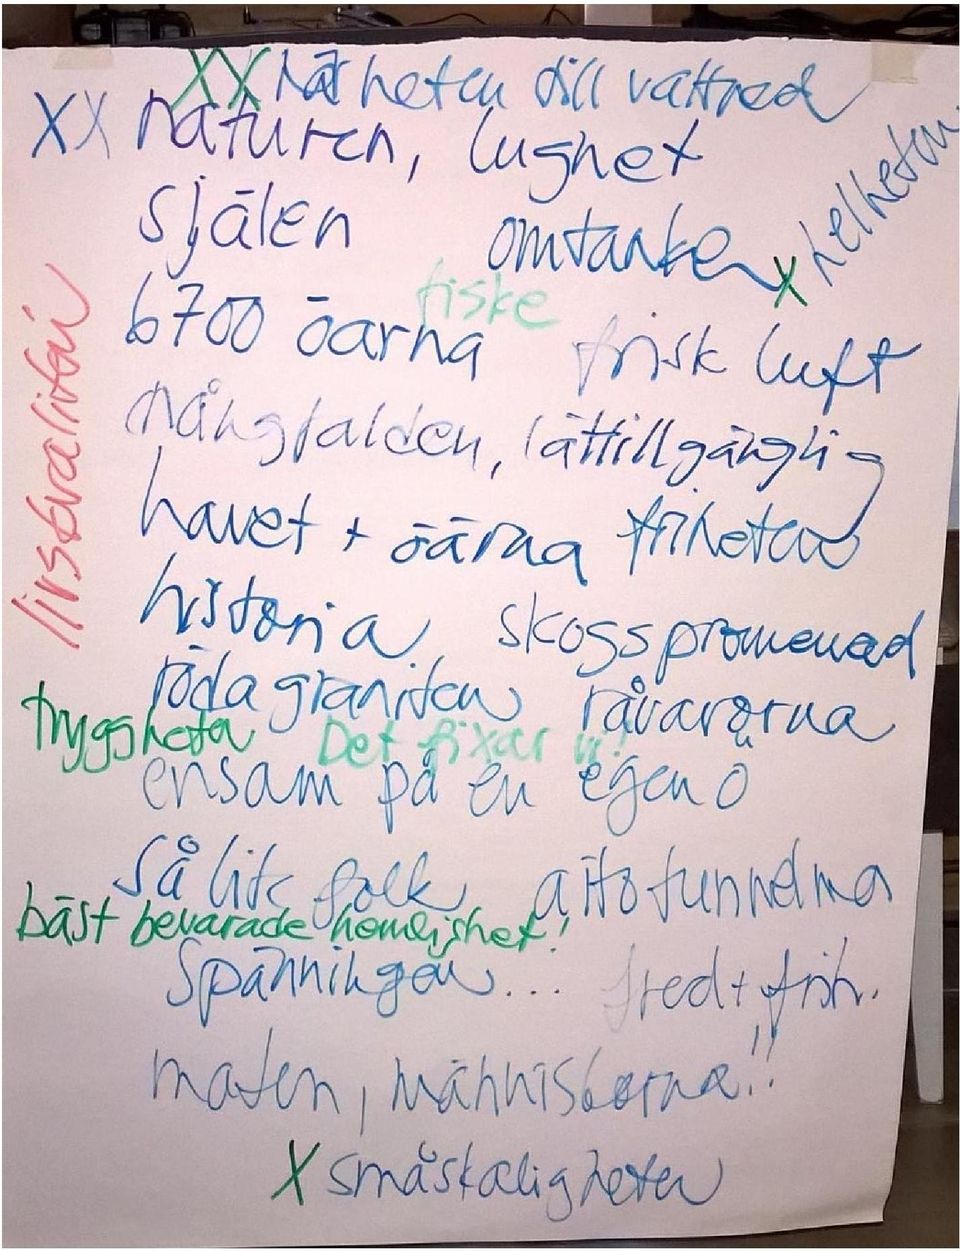 XX Närheten till vattned
XX naturen, lugnet
själen omtanken
X helheten
fiske
6700 öarna frisk luft
livskvaliten
mångfalden, lättillgänglig
havet + öärna friheten
historia skogspromenad
röda graniten råvarorna
tryggheten Det fixar vi!
ensam på en egen ö
så lite folk aito tunnelma
bäst bevarade hemlighet!
Spänningen... fred + frih.
maten, människorna!!
X småskaligheten